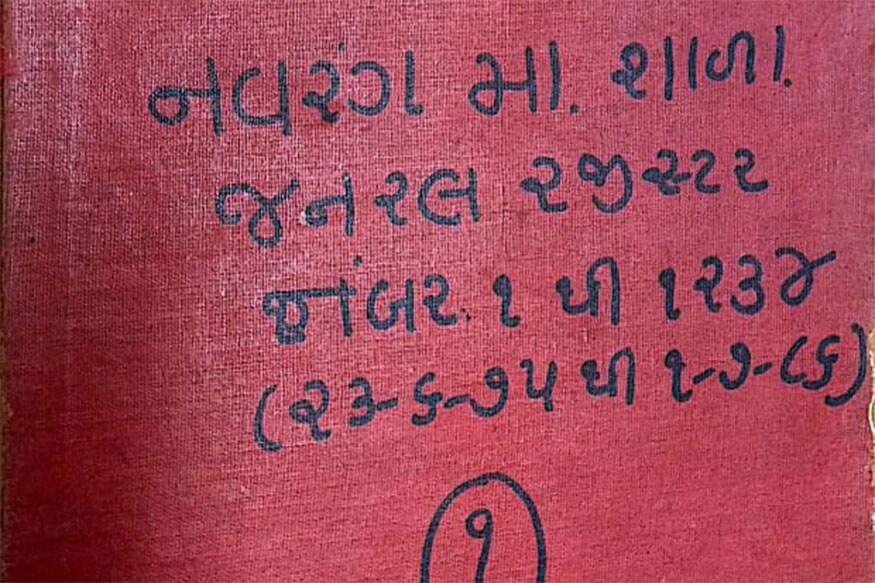 નવરંગ મા. શાળા.
જનરલ રજીસ્ટર
નંબર. ૧ થી ૧૨૩૪
(૨૩-૬-૭૫ થી ૧-૭-૮૬)
૧